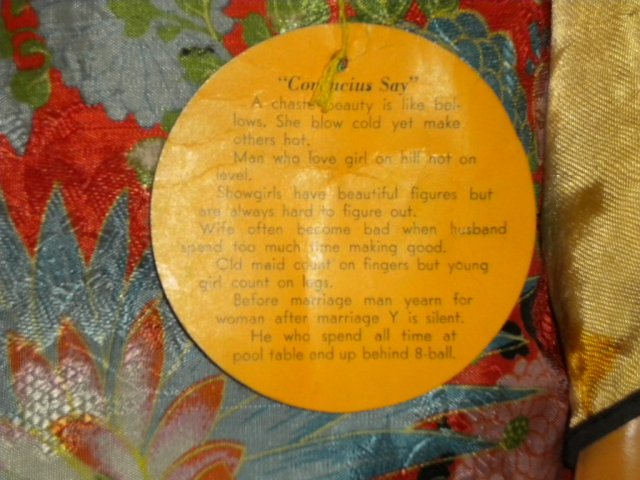 "Confucius Say"
A chaste beauty is like bel-
lows. She blow cold yet make
others hot.
Man who love girl on hill not on
level.
Showgirls have beautiful figures but
are always hard to figure out.
Wife often become bad when husband
spend too much time making good.
Old maid count on fingers but young
girl count on legs.
Before marriage man yearn for
woman after marriage Y is silent.
He who spend all time at
pool table end up behind 8-ball.